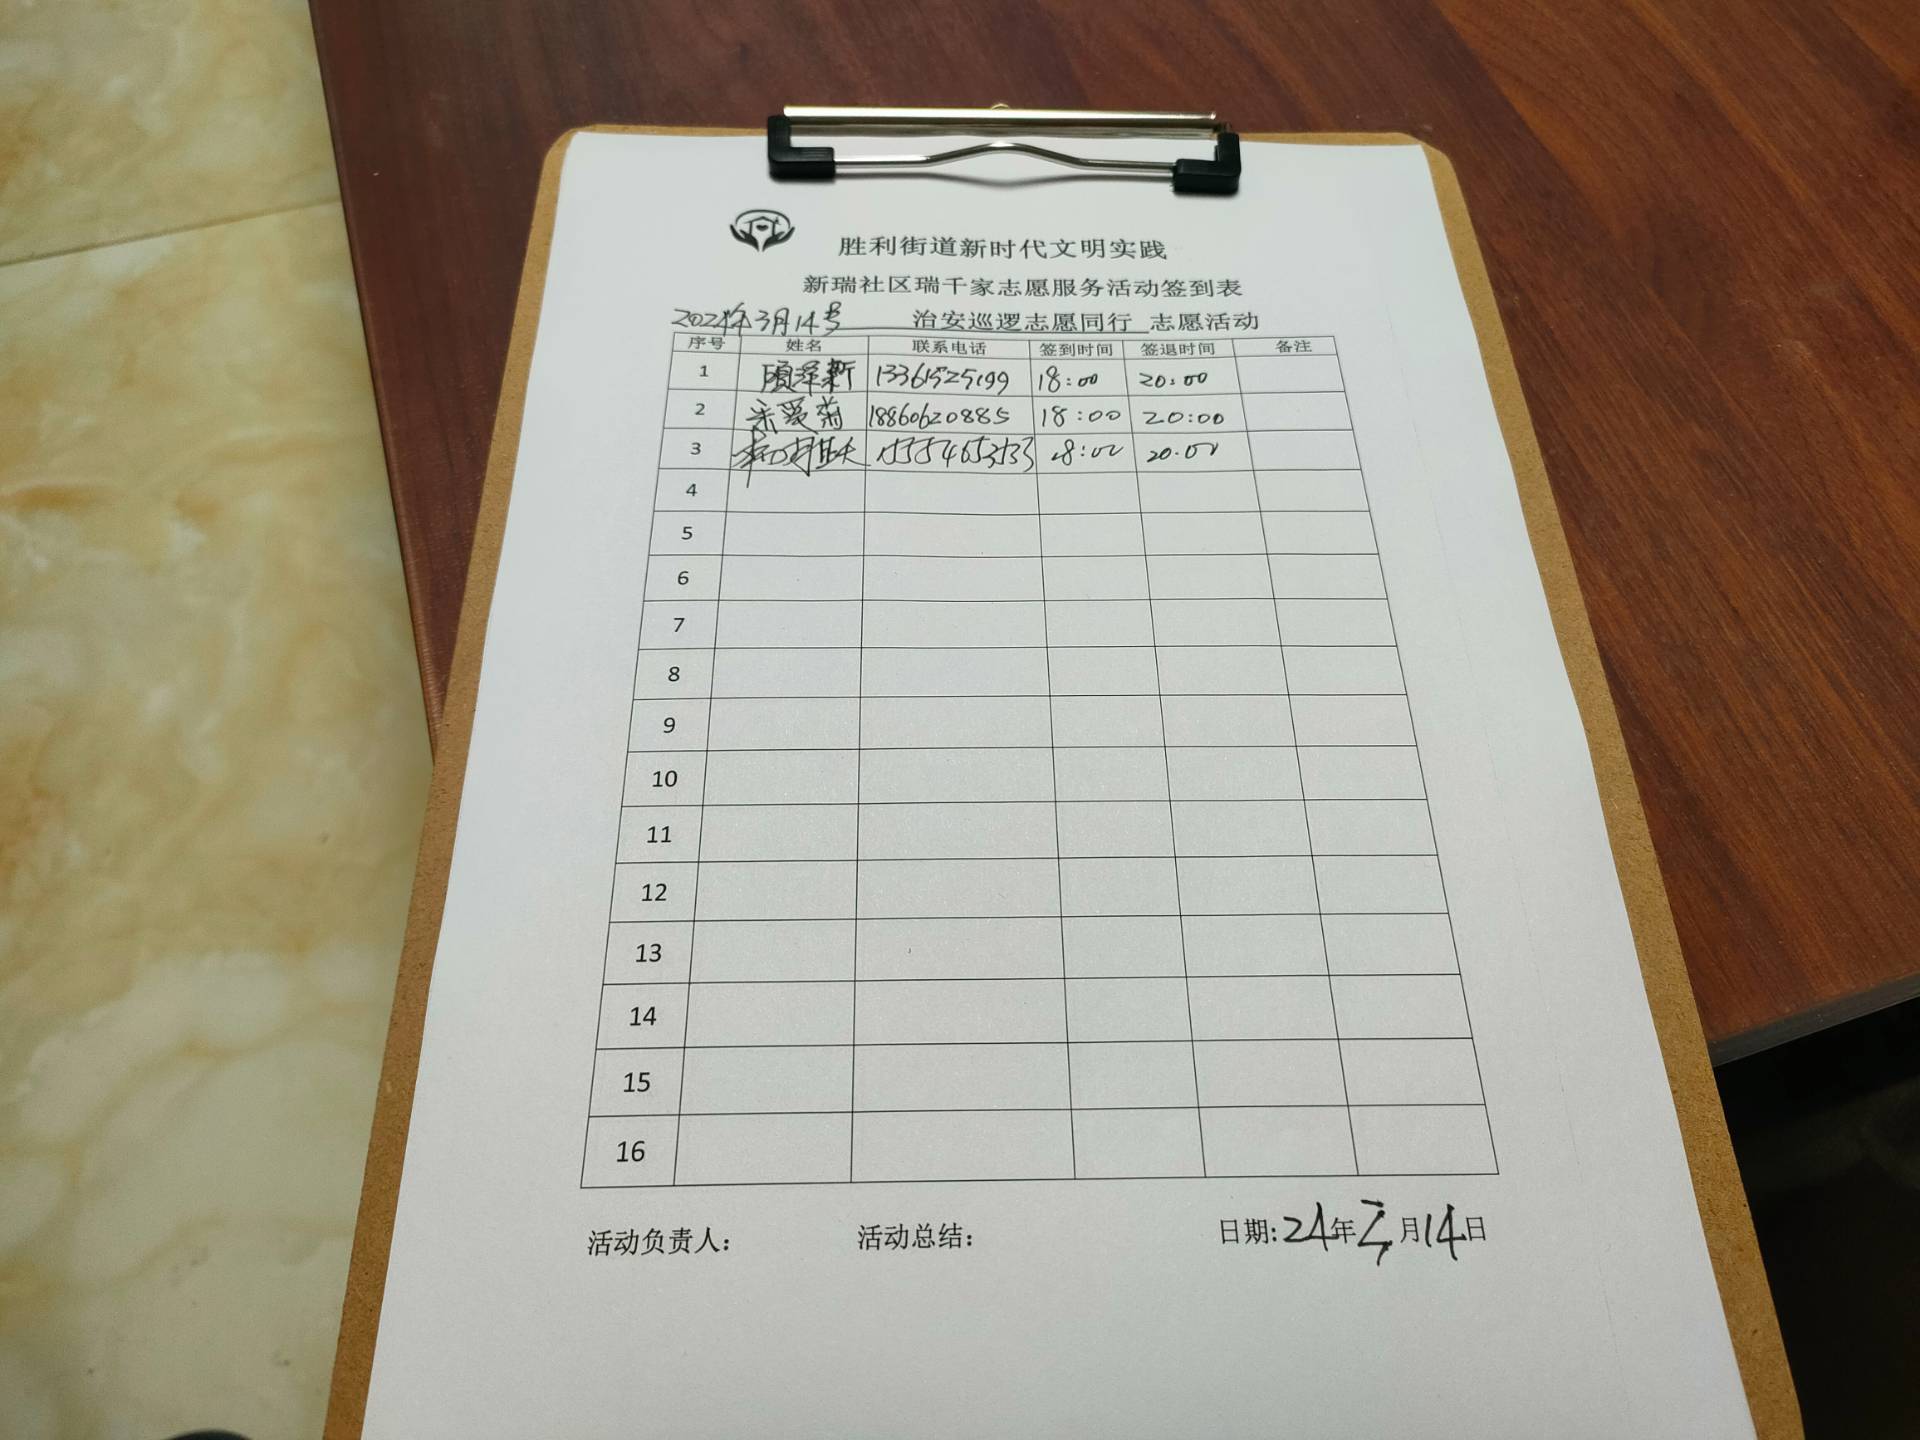 胜利街道新时代文明实践
新瑞社区瑞千家志愿服务活动签到表
2024年3月14号 治安巡逻志愿同行 志愿活动
序号 姓名 联系电话 签到时间 签退时间 备注
1 顾泽新 13361525199 18:00 20:00
2 爱菊 18860620885 18:00 20:00
3 18:00 20:00
4
5
6
7
8
9
10
11
12
13
14
15
16
活动负责人: 活动总结: 日期:24年3月14日